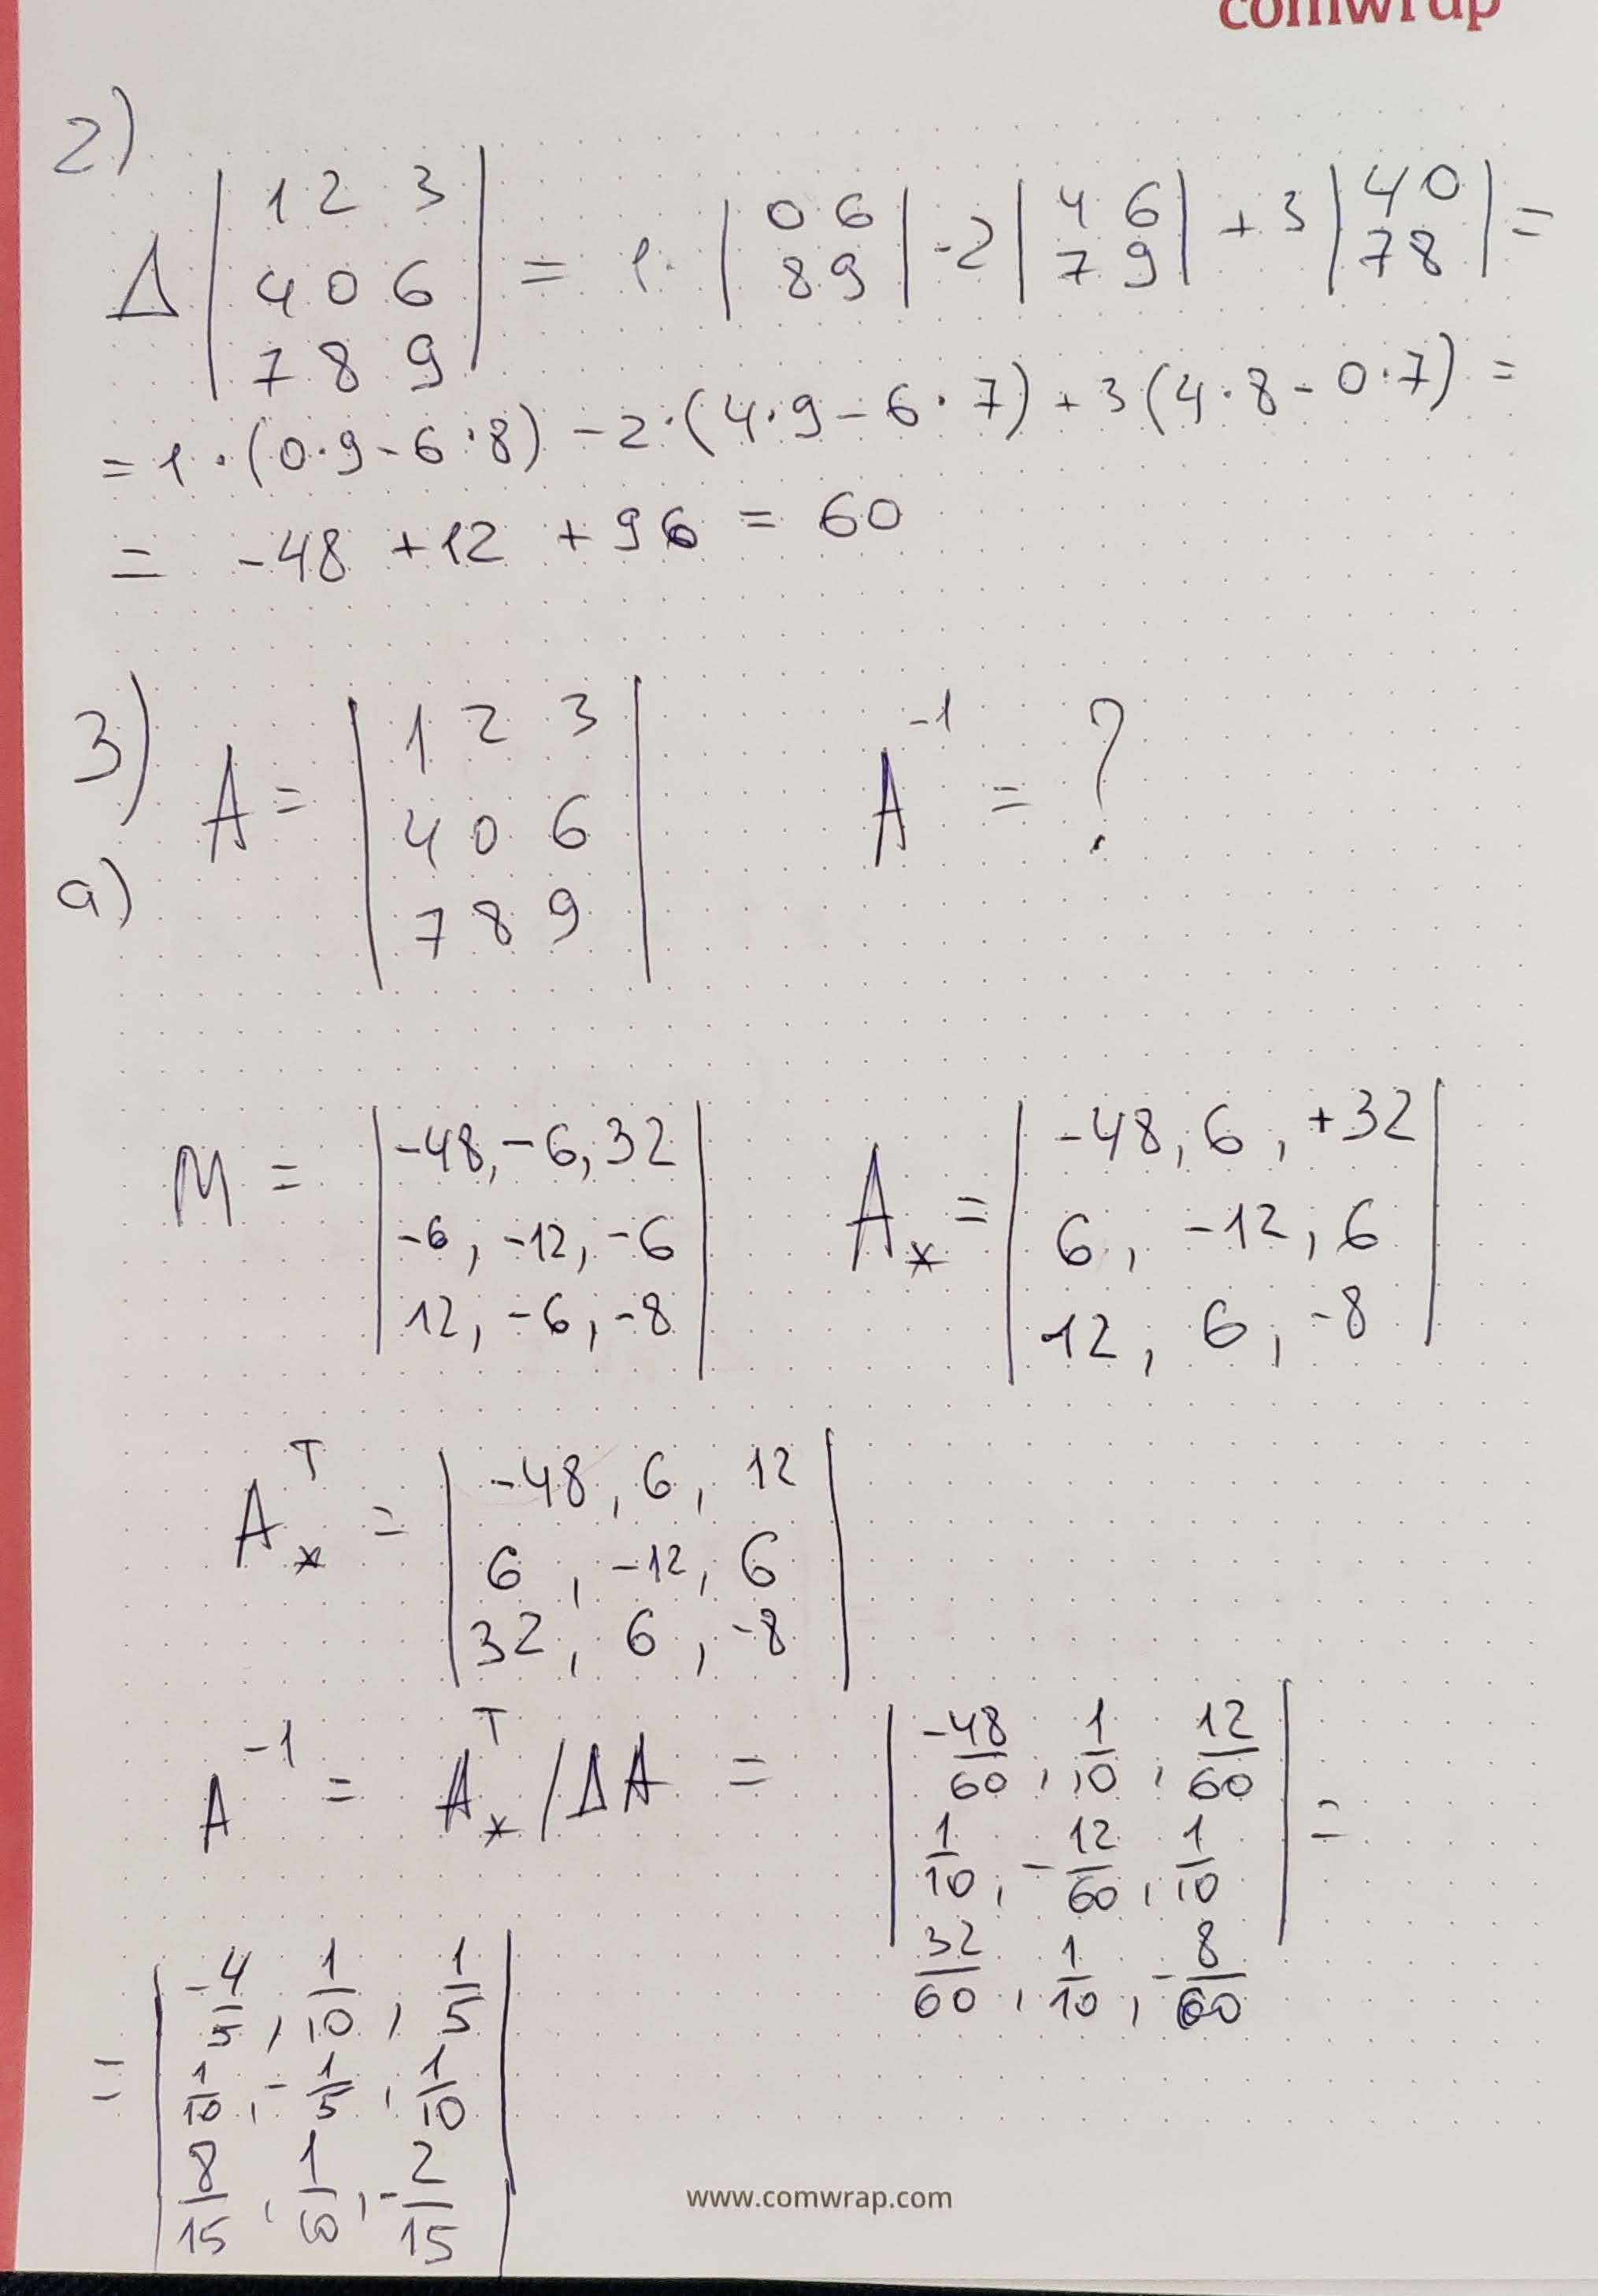 comwrap
2)
Δ | 1 2 3 | = 1· | 0 6 | -2 | 4 6 | + 3 | 4 0 | =
| 4 0 6 | | 8 9 | | 7 9 | | 7 8 |
| 7 8 9 |
= 1·(0·9-6·8) -2·(4·9-6·7)+3(4·8-0·7) =
= -48 +12 +96 = 60
3) A = | 1 2 3 | A⁻¹ = ?
| 4 0 6 |
a) | 7 8 9 |
M = | -48, -6, 32 | A* = | -48, 6, +32 |
| -6, -12, -6 | | 6, -12, 6 |
| 12, -6, -8 | | 12, 6, -8 |
A*ᵀ = | -48, 6, 12 |
| 6, -12, 6 |
| 32, 6, -8 |
A⁻¹ = A*ᵀ / ΔA = | -48/60, 1/10, 12/60 | =
| 1/10, -12/60, 1/10 |
| 32/60, 1/10, -8/60 |
= | -4/5, 1/10, 1/5 |
| 1/10, -1/5, 1/10 |
| 8/15, 1/10, -2/15 |
www.comwrap.com